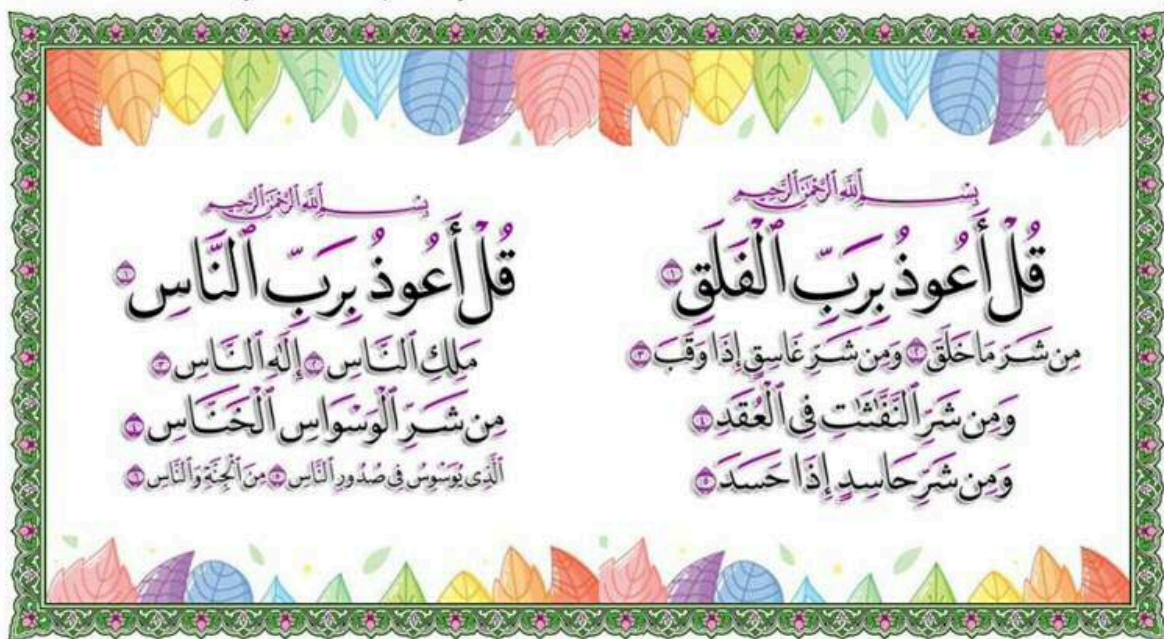 بِسْمِ ٱللَّهِ ٱلرَّحْمَٰنِ ٱلرَّحِيمِ
قُلْ أَعُوذُ بِرَبِّ ٱلْفَلَقِ ١
مِن شَرِّ مَا خَلَقَ ٢ وَمِن شَرِّ غَاسِقٍ إِذَا وَقَبَ ٣
وَمِن شَرِّ ٱلنَّفَّٰثَٰتِ فِى ٱلْعُقَدِ ٤
وَمِن شَرِّ حَاسِدٍ إِذَا حَسَدَ ٥
بِسْمِ ٱللَّهِ ٱلرَّحْمَٰنِ ٱلرَّحِيمِ
قُلْ أَعُوذُ بِرَبِّ ٱلنَّاسِ ١
مَلِكِ ٱلنَّاسِ ٢ إِلَٰهِ ٱلنَّاسِ ٣
مِن شَرِّ ٱلْوَسْوَاسِ ٱلْخَنَّاسِ ٤
ٱلَّذِى يُوَسْوِسُ فِى صُدُورِ ٱلنَّاسِ ٥ مِنَ ٱلْجِنَّةِ وَٱلنَّاسِ ٦